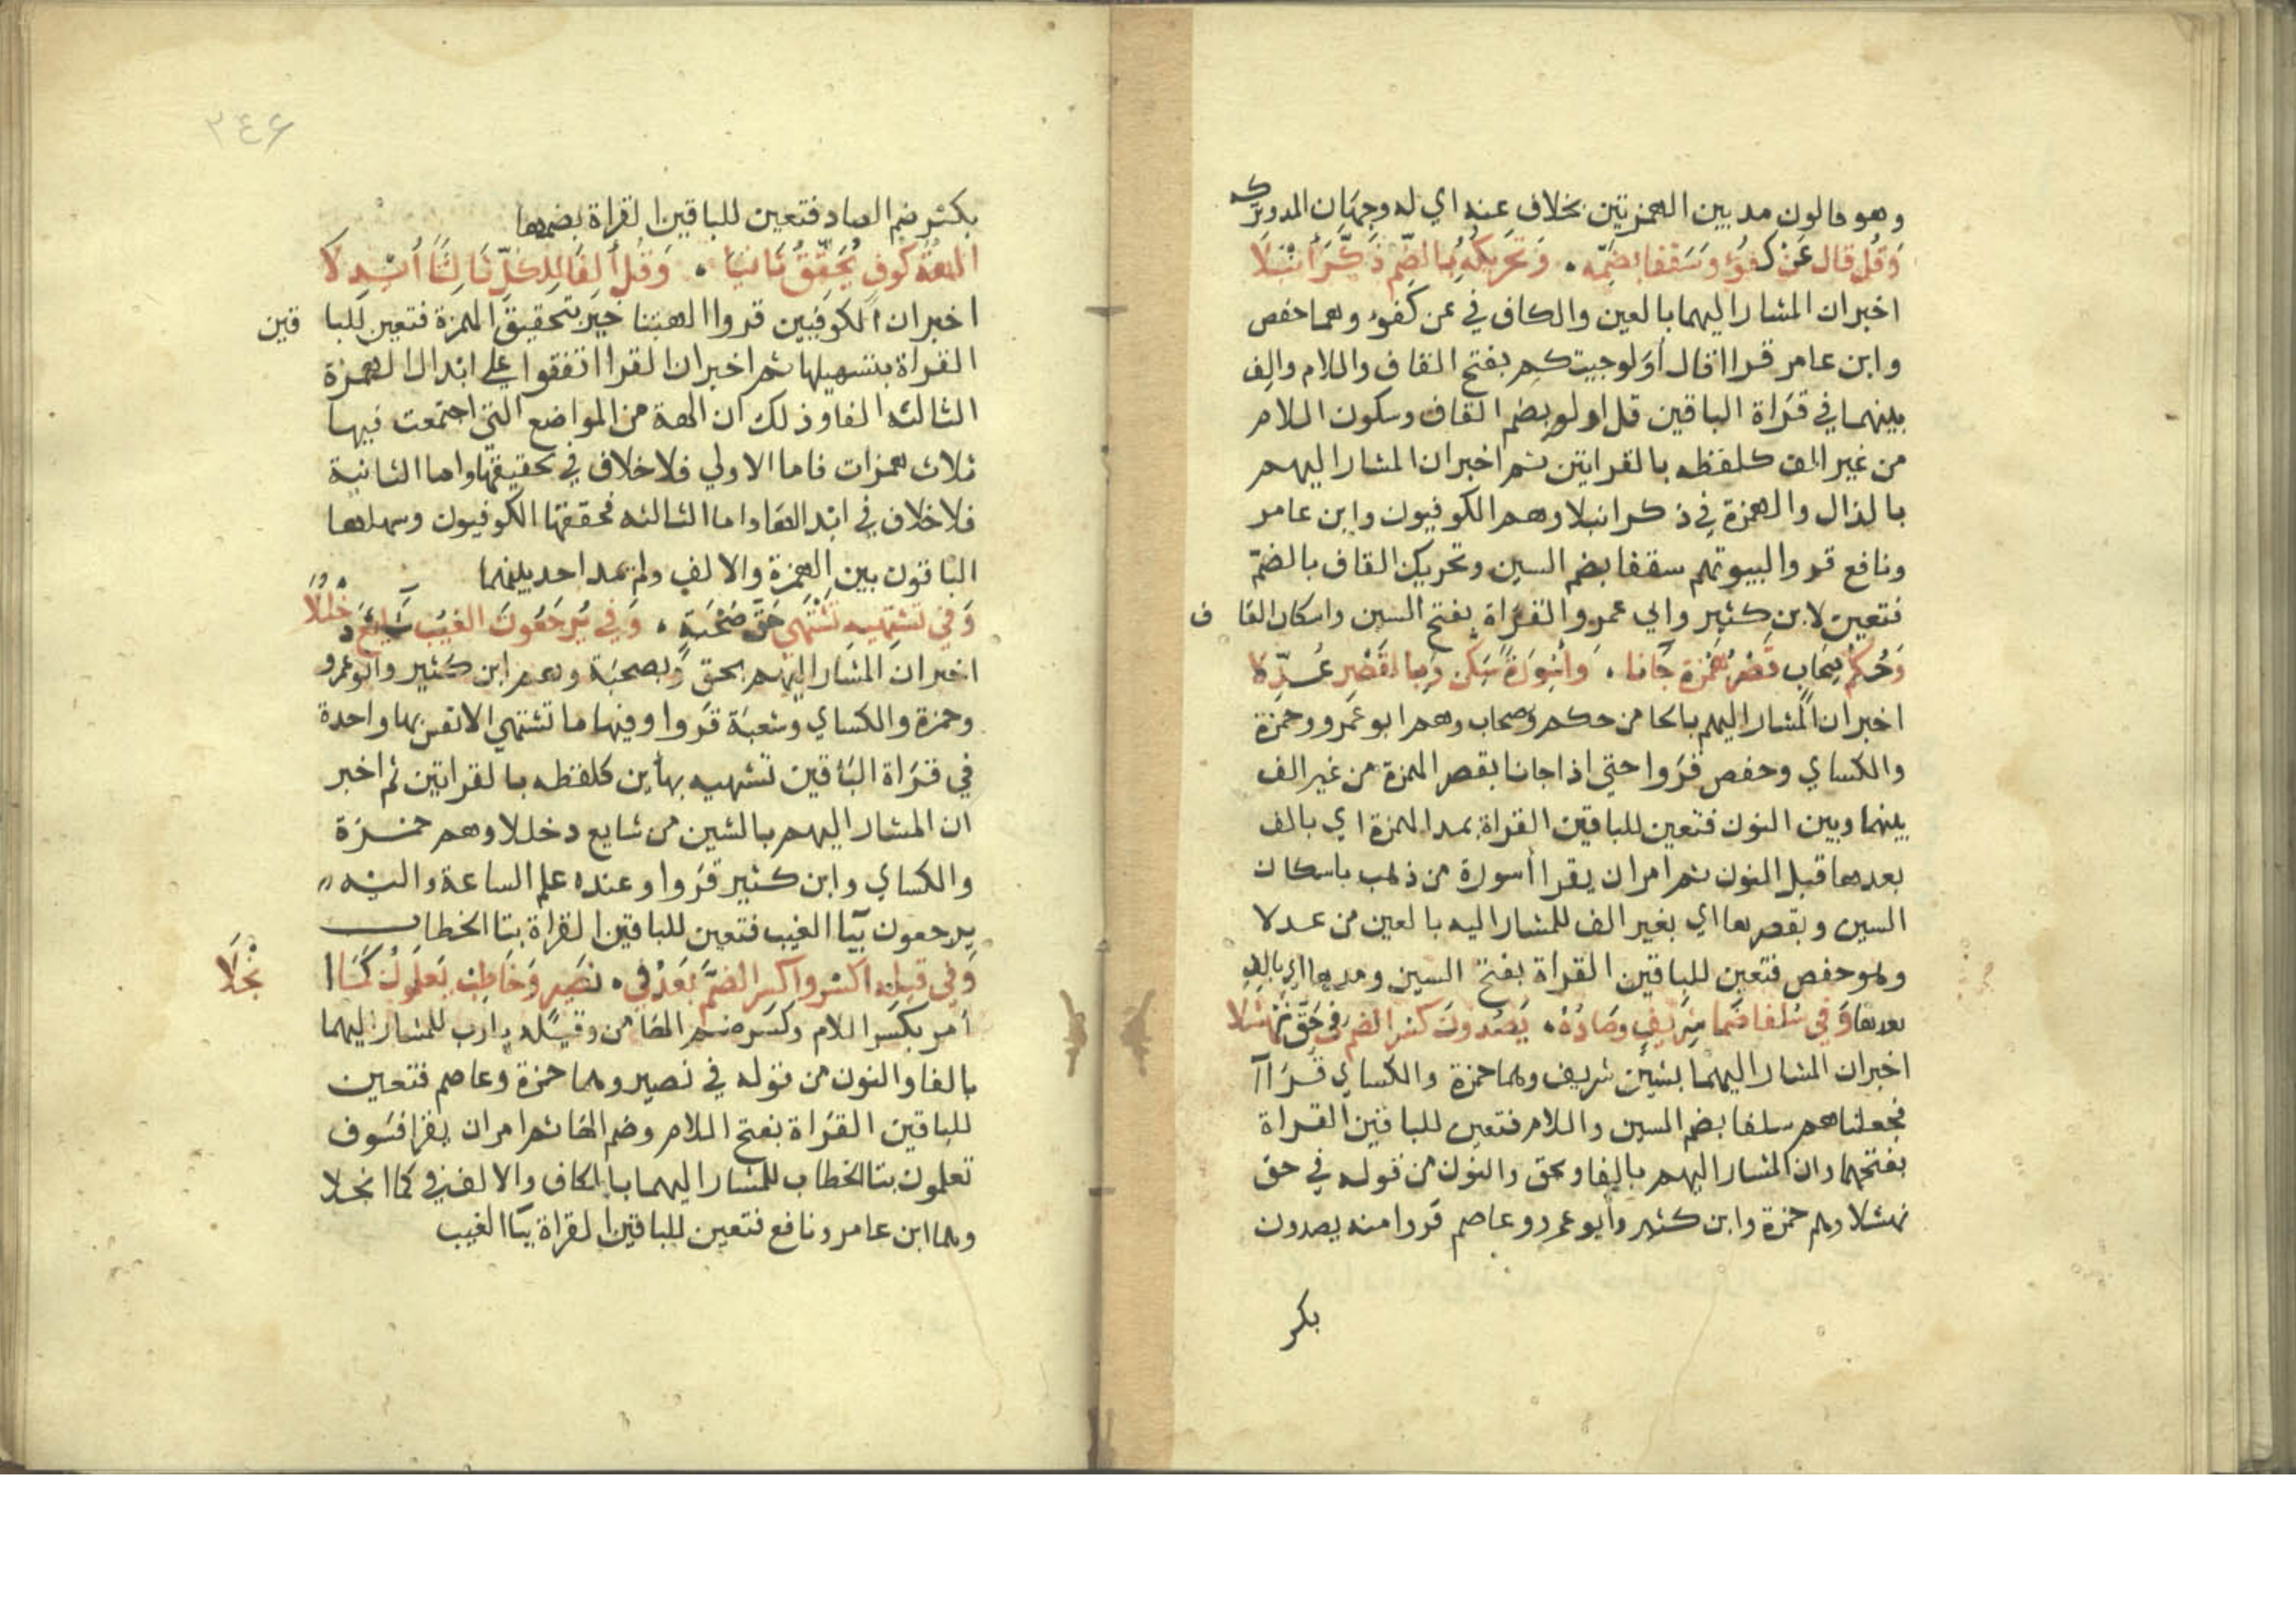 وهو قالون مد بين الهمزتين بخلاف عنه اي له وجهان المد وتركه
وَقُل قال عَن كفؤ وسَقفا بضمه . وَتحريكه بالضم ذكَّرَ أنبَلَا
اخبران المشار اليهما بالعين والكاف في عن كفوء وهما حفص
وابن عامر قرا اقال أولو جيتكم بفتح القاف واللام والف
بينهما في قراة الباقين قل اولو بضم القاف وسكون اللام
من غير الف كلفظه بالقراتين ثم اخبران المشار اليهم
بالذال والهمزة في ذكر انبلا وهم الكوفيون وابن عامر
ونافع قروا لبيوتهم سقفا بضم السين وتحريك القاف بالضمّ
فتعين لابن كثير وابي عمرو القراة بفتح السين واسكان القاف
وَحُكم صِحَابٍ قَصْرُ همزة جَانا . وَأسْوِرَةٌ سَكن وَبالقَصْرِ عُدِّلَا
اخبران المشار اليهم بالحا من حكم وصحاب وهم ابو عمرو وحمزة
والكساي وحفص قروا حتي اذا جانا بقصر الهمزة من غير الف
بينها وبين النون فتعين للباقين القراة بمد الهمزة اي بالف
بعدها قبل النون ثم امران يقرا أسورة من ذهب باسكان
السين وبقصرها اي بغير الف للمشار اليه بالعين من عدلا
وهو حفص فتعين للباقين القراة بفتح السين ومدها اي بالف
بعدها وَفي سُلفا ضَما شريف وصَادُهُ . يَصُدونَ كسْر الضم في حَقّ نَهْشَلا
اخبران المشار اليهما بشين شريف وهما حمزة والكساي قرَاا
فجعلناهم سلفا بضم السين واللام فتعين للباقين القراة
بفتحهما وان المشار اليهم بالفا وبحق والنون من قوله في حق
نهشلا وهم حمزة وابن كثير وأبو عمرو وعاصم قروا منه يصدون
بكر
٣٤٦
بكسر ضم الصاد فتعين للباقين القراة بضمها
الهةٌ كوفٍ يُحَقِّقُ ثانيًا . وَقُل ألِفًا لِلكلّ ثَالِثًا أُبْدِلَا
اخبران الكوفيين قروا الهتنا خير بتحقيق الهمزة فتعين للباقين
القراة بتسهيلها ثم اخبران القرا اتفقوا علي ابدال الهمزة
الثالثه الفا وذلك ان الهة من المواضع التي اجتمعت فيها
ثلاث همزات فاما الاولي فلا خلاف في تحقيقها واما الثانية
فلا خلاف في ابدالها واما الثالثه فحققها الكوفيون وسهلها
الباقون بين الهمزة والالف ولم يمد احد بينهما
وَفي تشتهيه تَشْتَهي حَقُّ صُحْبَةٍ . وَفي يُرجَعُونَ الغَيْبَ شَايَعَ دُخْلُلَا
اخبران المشار اليهم بحق وبصحبَة وهم ابن كثير وابو عمرو
وحمزة والكساي وشعبَة قروا وفيها ما تشتهي الانفس بها واحدة
في قراة الباقين تشتهيه بهأين كلفظه بالقراتين ثم اخبر
ان المشار اليهم بالشين من شايع دخللا وهم حمزة
والكساي وابن كثير قروا وعنده علم الساعة واليه
يرجعون بيَا الغيب فتعين للباقين القراة بتا الخطاب
وَفي قيله اكسْر واكسر الضمَّ بَعدُ في . نصير وَخاطب تعلمون كَمَا انْجَلَا
أمر بكسر اللام وكسر ضم الها من وقيله يارب للمشار اليهما
بالفا والنون من قوله في نصير وهما حمزة وعاصم فتعين
للباقين القراة بفتح اللام وضم الها ثم امران يقرا فسَوف
تعلمون بتا الخطاب للمشار اليهما بالكاف والالف في كما انجلا
وهما ابن عامر ونافع فتعين للباقين القراة بيَا الغيب